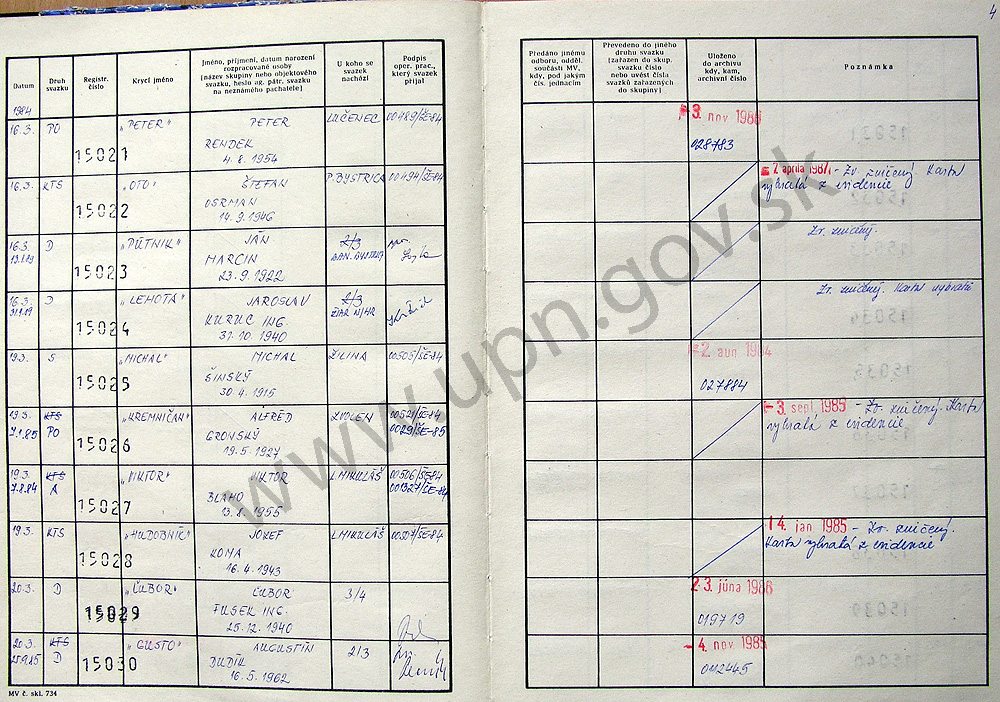 4
Datum
Druh svazku
Registr. číslo
Krycí jméno
Jméno, příjmení, datum narození
rozpracované osoby
[název skupiny nebo objektového
svazku, heslo ag. pátr. svazku
na neznámého pachatele]
U koho se
svazek
nachází
Podpis
oper. prac.,
který svazek
přijal
Předáno jinému
odboru, odděl.
součásti MV,
kdy, pod jakým
čís. jednacím
Převedeno do jiného
druhu svazku
[zařazen do skup.
svazku číslo
nebo uvést čísla
svazků zařazených
do skupiny]
Uloženo
do archivu
kdy, kam,
archivní číslo
Poznámka
1984
16.3. PO 15021 "PETER" PETER LUČENEC 00489/ŠE-84
RENDEK
4. 8. 1954
3. nov 1986
028783
16.3. KTS 15022 "OTO" ŠTEFAN P. BYSTRICA 00494/ŠE-84
OSRMAN
14. 9. 1946
2. apríla 1987 - Zv. zničený Karta
vybratá z evidencie
16.3. D 15023 "PÚTNIK" JÁN 2/3
MARCIN BAN. BYSTRICA
23. 9. 1922
Zv. zničený.
16.3. D 15024 "LEHOTA" JAROSLAV 2/3
KURUC ING. ŽIAR N/HR
31. 10. 1940
Zv. zničený. Karta vybratá
19.3. S 15025 "MICHAL" MICHAL ŽILINA 00505/ŠE-84
ŠINSKÝ
30. 4. 1915
2. aug 1984
027884
19.3. KTS 15026 "KREMNIČAN" ALFRÉD ZVOLEN 00521/ŠE-84
7.1.85 PO GRONSKÝ 0029/ŠE-85
19. 5. 1927
3. sept. 1985 - Zv. zničený. Karta
vybratá z evidencie
19.3. KTS 15027 "VIKTOR" VIKTOR L. MIKULÁŠ 00506/ŠE-84
7.8.84 A BLAHO 001327/ŠE-84
13. 8. 1955
19.3. KTS 15028 "HUDOBNÍK" JOZEF L. MIKULÁŠ 00507/ŠE-84
KOMA
16. 4. 1943
14. jan 1985 - Zv. zničený.
Karta vybratá z evidencie
20.3. D 15029 "ĽUBOR" ĽUBOR 3/4
FUSEK ING.
25. 12. 1940
23. júna 1986
019719
20.3. KTS 15030 "GUSTO" AUGUSTÍN 2/3
25.9.85 D DUDÍK
16. 5. 1962
4. nov 1985
012445
MV č. skl. 734
www.upn.gov.sk